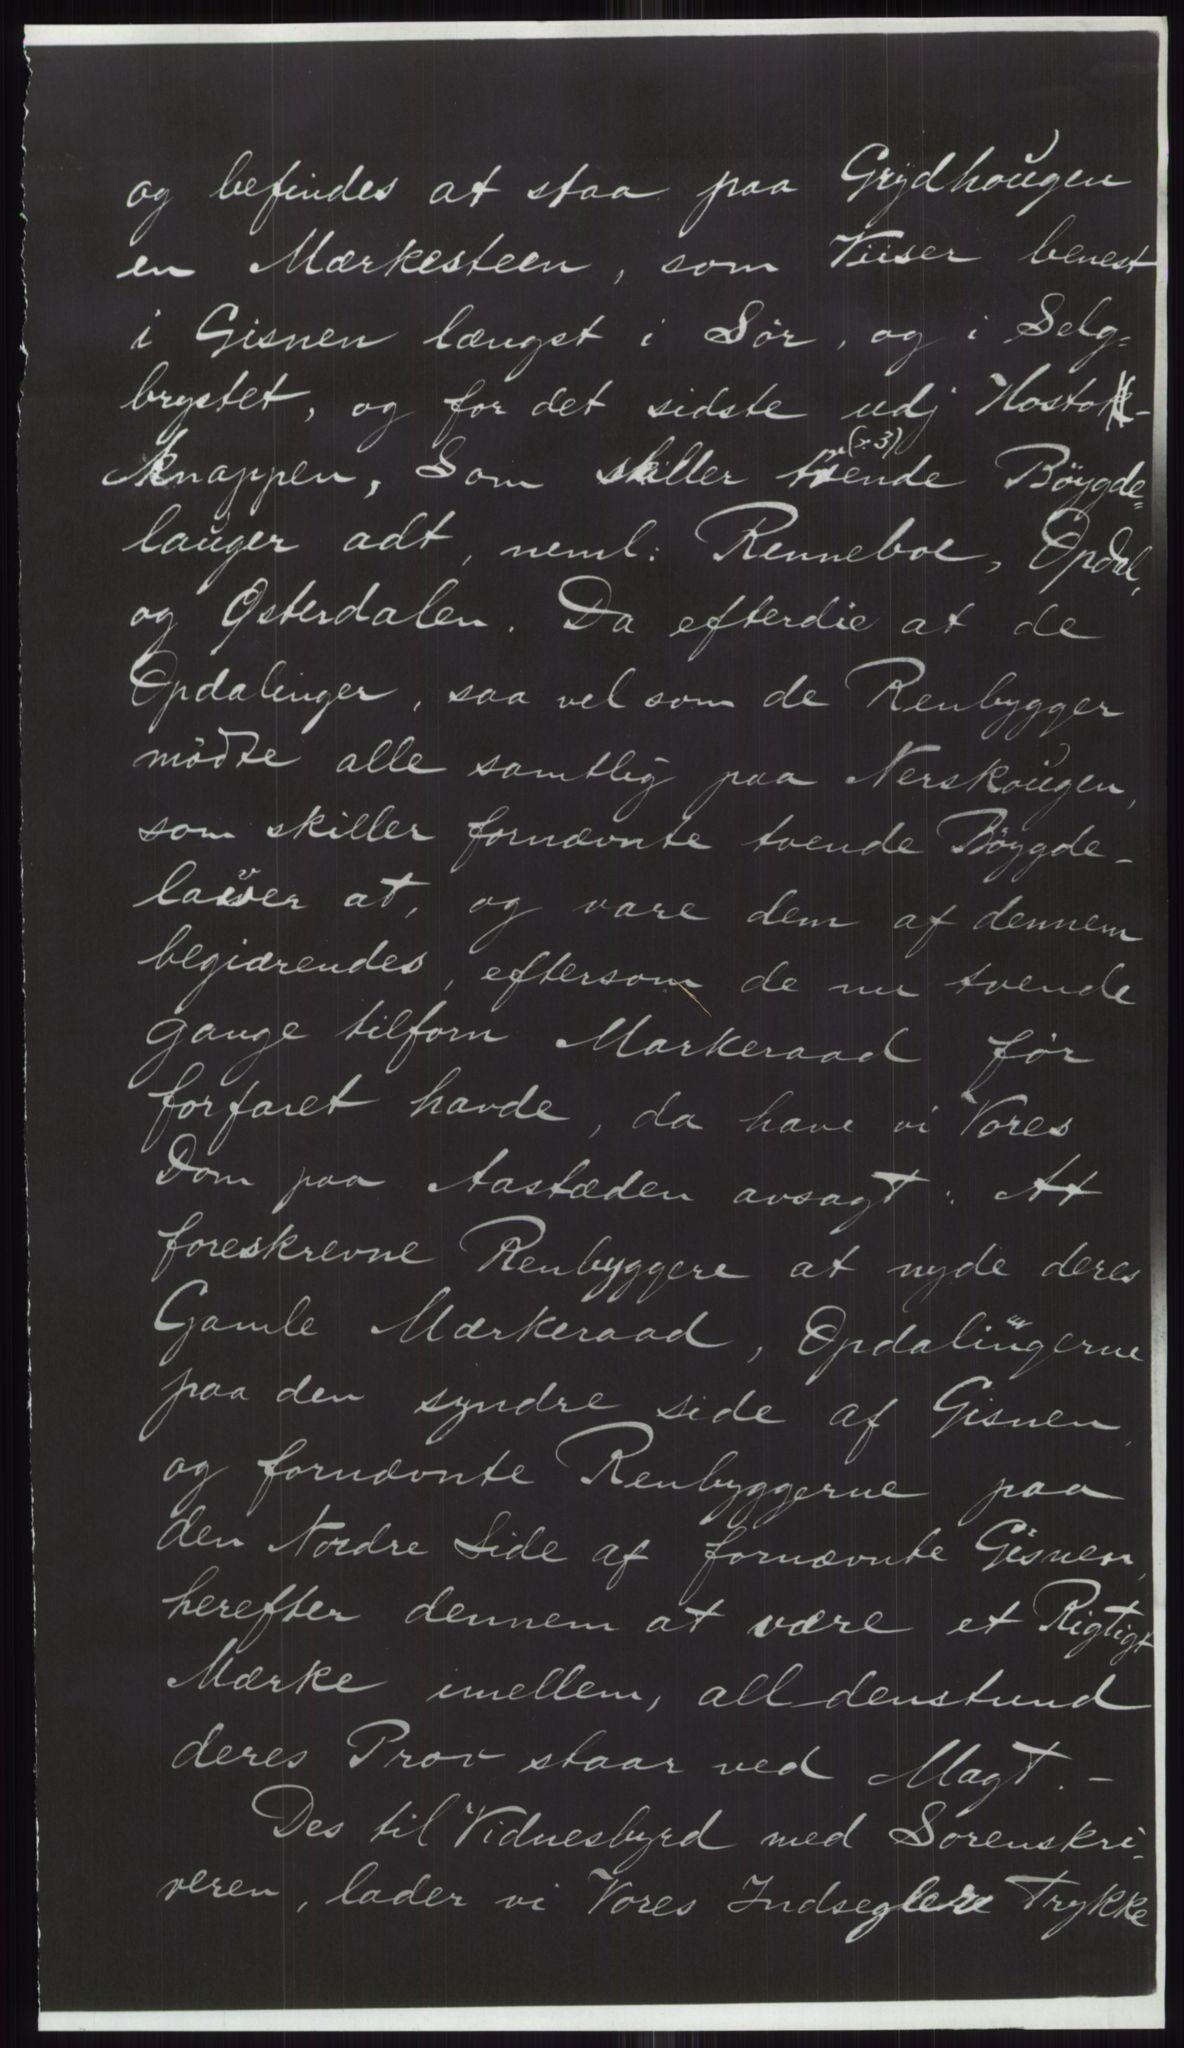 og befindes at staa paa Grydhoŭgen
en Mærkesteen, som Viiser benest
i Gisnen længst i Sør, og i Selg=
brystet, og for det sidste udj Hosto
knappen, Som skiller tvende (: 3) Böygde=
lauger adt, neml: Renneboe, Opdal,
og Østerdalen. Da efterdie at de
Opdalinger, saa vel som de Renbygger
mödte alle samtlig paa Nerskoŭgen,
som skiller fornævnte tvende Böygde-
lauer at, og vare dem af dennem
begiærendes, eftersom de nu tvende
gange tilforn Markeraad før
forfaret havde, da have vi Vores
Dom paa Aastæden avsagt: At
foreskrevne Renbyggere at nyde deres
Gamle Mærkeraad, Opdalingerne
paa den syndre side af Gisnen,
og fornævnte Renbyggerne paa
den Nordre Side af fornævnte Gisnen,
herefter dennem at være et Rigtigt
Mærke imellem, all denstund
deres Prov staar ved Magt. -
Des til Vidnesbyrd med Sorenskri-
veren, lader vi Vores Indseglere Trykke